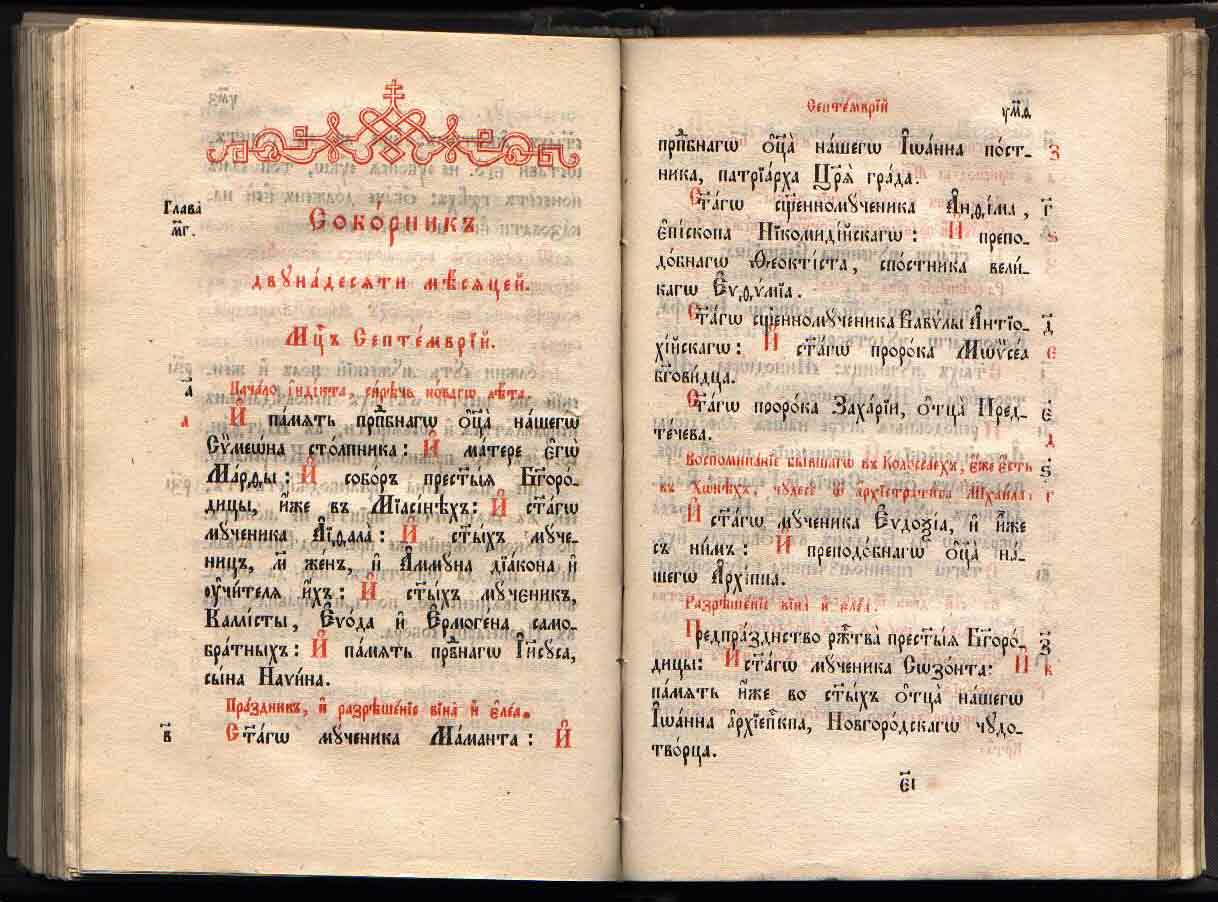 Глава̀
м҃г.
Собо́рникъ
двꙋна́десяти мѣ́сяцей.
Мцⷭ҇ъ Септе́мврїй.
а҃
Нача́ло і҆нді́кта, си́рѣчь но́вагѡ лѣ́та.
а
И҆ па́мять прпⷣбнагѡ ѻ҆ц҃а̀ на́шегѡ
Сѷмеѡ́на сто́лпника: И҆ ма́тере є҆гѡ̀
Ма́рѳы: И҆ собо́ръ прест҃ы́я Бг҃оро́-
дицы, и҆́же въ Мїаси́нѣхъ: И҆ ст҃а́гѡ
мꙋ́ченика А҆їѳала̀: И҆ ст҃ы́хъ мꙋ́че-
ницъ, м҃ же́нъ, и҆ А҆ммꙋ́на дїа́кона и҆
ᲂу҆чи́теля и҆́хъ: И҆ ст҃ы́хъ мꙋ́ченикъ,
Каллі́сты, Є҆ѵо́да и҆ Є҆рмоге́на само-
бра́тныхъ: И҆ па́мять првⷣнагѡ І҆исꙋ́са,
сы́на Наѵи́на.
Пра́здникъ, и҆ разрѣше́нїе вїна̀ и҆ є҆ле́а.
в҃
Ст҃а́гѡ мꙋ́ченика Ма́манта: И҆
Септе́мврїй
ᲂум҃я
прпⷣбнагѡ ѻ҆ц҃а̀ на́шегѡ І҆ѡа́нна по́ст-
з
ника, патрїа́рха Цр҃я̀ гра́да.
Ст҃а́гѡ сщ҃енномꙋ́ченика А҆нѳі́ма,
г҃
є҆пі́скопа Нїкомиді́йскагѡ: И҆ препо-
ѕ
до́бнагѡ Ѳеокті́ста, спо́стника вели́-
кагѡ Є҆ѵѳѵ́мїа.
Ст҃а́гѡ сщ҃енномꙋ́ченика Вавѵ́лы А҆нтїо-
д҃
хі́йскагѡ: И҆ ст҃а́гѡ проро́ка Мѡѷсе́а
є
бг҃ови́дца.
Ст҃а́гѡ проро́ка Заха́рїи, ѻ҆тца̀ Пред-
є҃
те́чева.
д
Воспомина́нїе бы́вшагѡ въ Колоссаехъ, є҆́же є҆́сть
ѕ҃
въ Хѡнѣ́хъ, чꙋдесѐ ѿ а҆рхїстрати́га Мїхаи́ла:
г
И҆ ст҃а́гѡ мꙋ́ченика Є҆ѵдоѯі́а, и҆ и҆́же
съ ни́мъ: И҆ преподо́бнагѡ ѻ҆ц҃а̀ на́-
шегѡ А҆рхі́ппа.
Разрѣше́нїе вїна̀ и҆ є҆ле́а.
Предпра́зднство ржⷭ҇тва̀ прест҃ы́я Бг҃оро́-
з҃
дицы: И҆ ст҃а́гѡ мꙋ́ченика Сѡзо́нта: И҆
в
па́мять и҆́же во ст҃ы́хъ ѻ҆тца̀ на́шегѡ
І҆ѡа́нна а҆рхїеп҃кпа, Новгоро́дскагѡ чꙋдо-
тво́рца.
є҃і